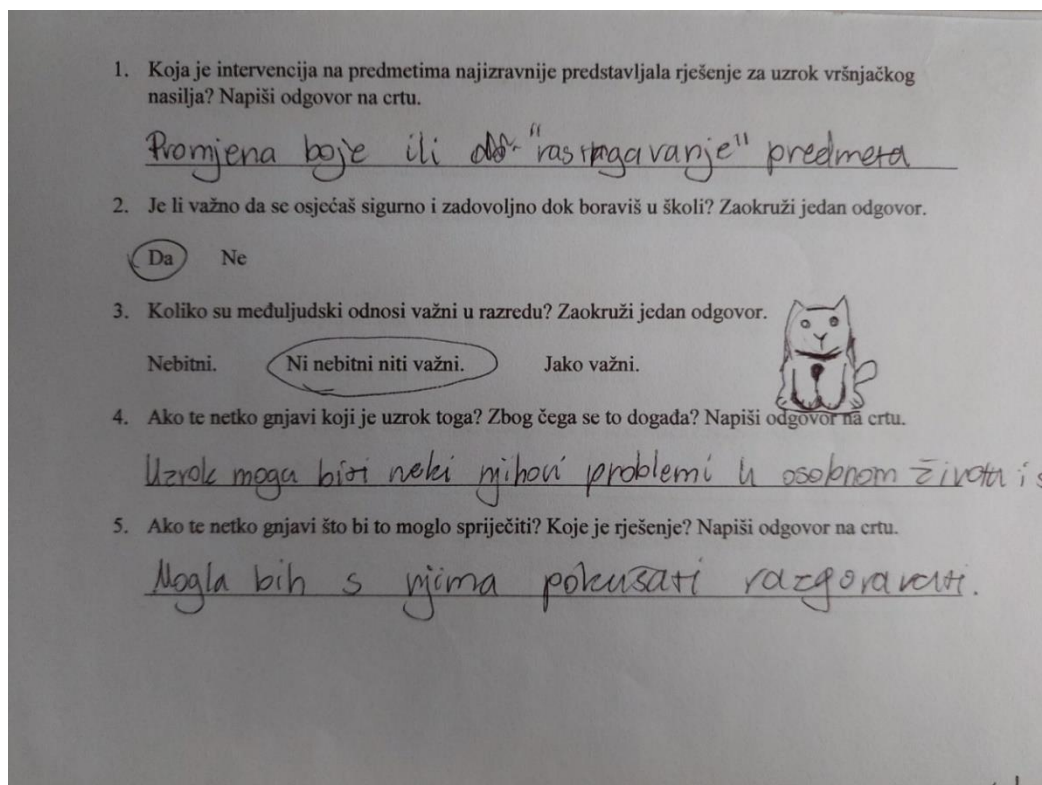 1. Koja je intervencija na predmetima najizravnije predstavljala rješenje za uzrok vršnjačkog
nasilja? Napiši odgovor na crtu.
Promjena boje ili "rastrgavanje" predmeta
2. Je li važno da se osjećaš sigurno i zadovoljno dok boraviš u školi? Zaokruži jedan odgovor.
Da Ne
3. Koliko su međuljudski odnosi važni u razredu? Zaokruži jedan odgovor.
Nebitni. Ni nebitni niti važni. Jako važni.
4. Ako te netko gnjavi koji je uzrok toga? Zbog čega se to događa? Napiši odgovor na crtu.
Uzrok mogu biti neki njihovi problemi u osobnom životu i
5. Ako te netko gnjavi što bi to moglo spriječiti? Koje je rješenje? Napiši odgovor na crtu.
Mogla bih s njima pokušati razgovarati.